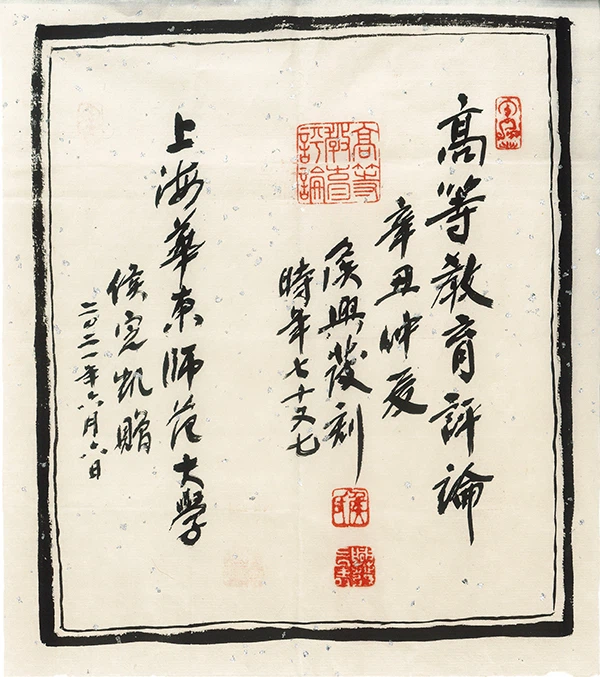 高等教育評論
高等
教育
評論
辛丑仲夏
侯興發刻
時年七十又七
上海華東師范大學
侯定凱贈
二〇二一年六月六日